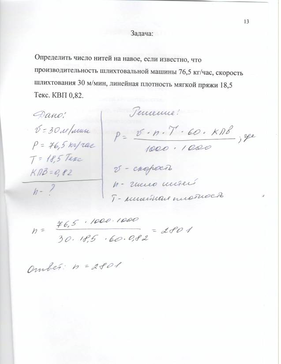 13
Задача:
Определить число нитей на навое, если известно, что
производительность шлихтовальной машины 76,5 кг/час, скорость
шлихтования 30 м/мин, линейная плотность мягкой пряжи 18,5
Текс. КВП 0,82.
Дано:
V=30 м/мин
P = 76,5 кг/час
T = 18,5 Текс
КПВ = 0,82
n - ?
Решение:
P = V · n · T · 60 · КПВ / 1000 · 1000
V - скорость
n - число нитей
T - линейная плотность
n = 76,5 · 1000 · 1000 / 30 · 18,5 · 60 · 0,82 = 2801
Ответ: n = 2801